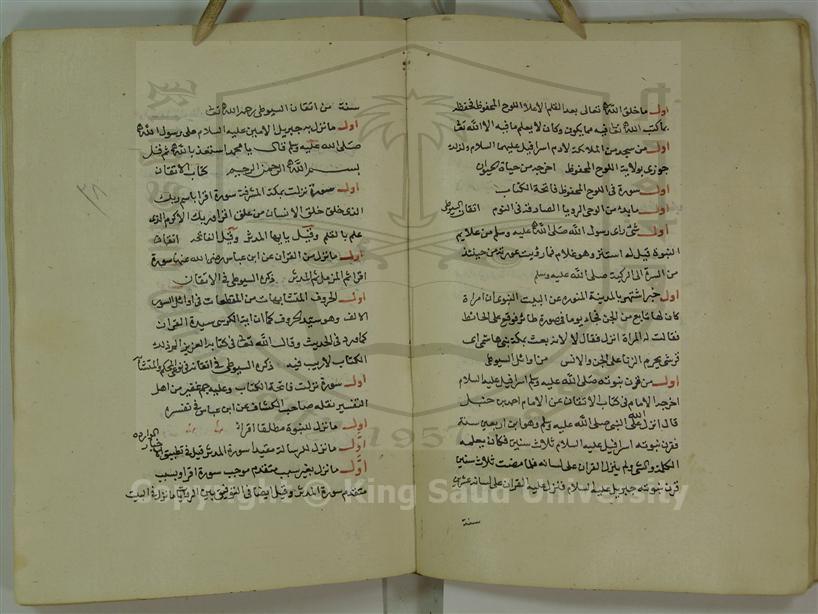 اول ما خلق الله تعالى بعد القلم الاعلا اللوح المحفوظ فحفظ
بما كتب الله فيه مما يكون وكان لا يعلم ما فيه الا الله
اول من سجد من الملائكة لادم اسرافيل عليهما السلام ولذلك
جوزي بولاية اللوح المحفوظ اخرجه من حياة الحيوان
اول سورة في اللوح المحفوظ فاتحة الكتاب
اول ما يدء من الوحي الرويا الصادقة في النوم اتقان السيوطي
اول شئ راى رسول الله صلى الله عليه وسلم من علايم
النبوة قيل له استتر وهو غلام فما رؤيت عورته من حينئذ
من السرة الى الركبة صلى الله عليه وسلم
اول خبر اشتهر بالمدينة المنورة عن البيت النبوي ان امراة
كان لها تابع من الجن فجاء يوما في صورة طائر فوقع على الحائط
فقالت له المراة انزل فقال لا لانه بعث بمكة نبي هاشمي
قرشي يحرم الزنا على الجن والانس من اوائل السيوطي
اول من قرن بنبوته صلى الله عليه وسلم اسرافيل عليه السلام
اخرجه الامام في كتاب الاتقان عن الامام احمد بن حنبل
قال انزل على النبي صلى الله عليه وسلم وهو ابن اربعين سنة
فقرن بنبوته اسرافيل عليه السلام ثلاث سنين فكان يعلمه
الكلمة والشئ ولم ينزل القران على لسانه فلما مضت ثلاث سنين
قرن بنبوته جبريل عليه السلام فنزل عليه القران على لسانه عشرين
سنة
سنة من اتقان السيوطي رحمه الله
اول ما نزل به جبريل الامين عليه السلام على رسول الله
صلى الله عليه وسلم قال يا محمد استعذ بالله ثم قل
بسم الله الرحمن الرحيم كتاب الاتقان
اول سورة نزلت بمكة المشرفة سورة اقرا باسم ربك
الذي خلق خلق الانسان من علق اقرا وربك الاكرم الذي
علم بالقلم وقيل يايها المدثر وقيل الفاتحة اتقان
اول ما نزل من القران عن ابن عباس رضي الله عنهما سورة
اقرا ثم المزمل ثم المدثر ذكره السيوطي في الاتقان
اول الحروف المتشابهات من المقطعات في اوائل السور
الالف وهو سيد الحروف كما ان اية الكرسي سيدة القران
كما ورد في الحديث وقال الله في كتابه العزيز الم ذلك
الكتاب لا ريب فيه ذكره السيوطي في اتقانه في نوع المحكم والمتشابه
اول سورة نزلت فاتحة الكتاب وعليه جم غفير من اهل
التفسير نقله صاحب الكشاف عن ابن عباس في تفسره
اول ما نزل للنبوة مطلقا اقرا
اول ما نزل للرسالة مقيدا سورة المدثر قيله
اول ما نزل بغير سبب متقدم موجب سورة اقرا وبسبب
متقدم سورة المدثر وقيل ايضا في التوفيق بين الروايتين
Copyright © King Saud University
1957